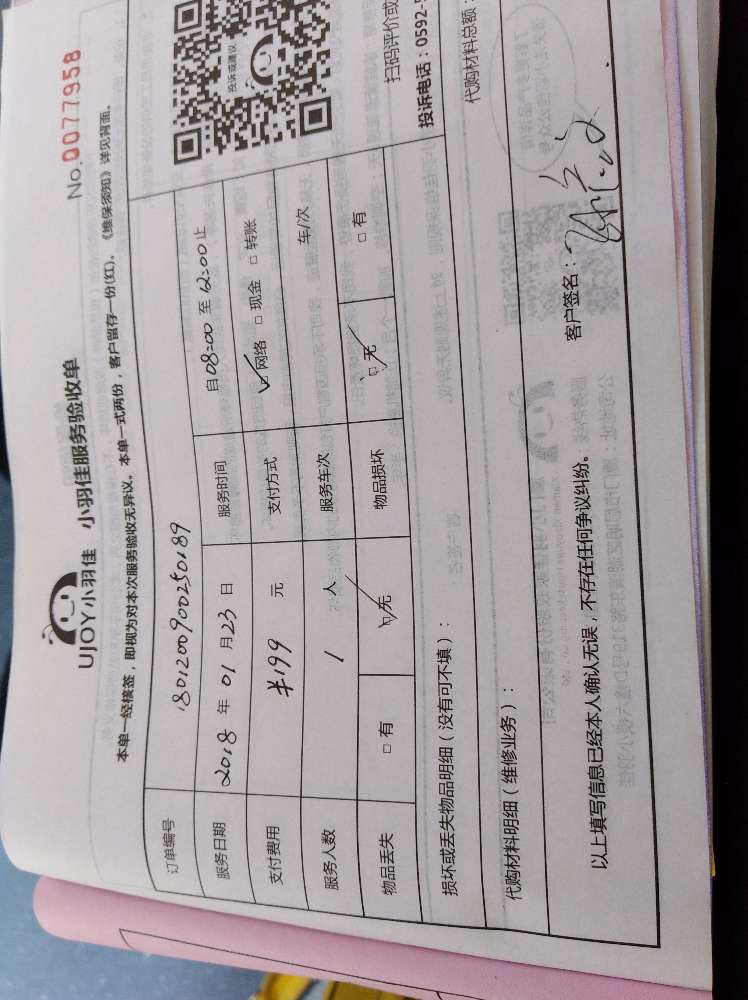 UJOY小羽佳 小羽佳服务验收单
No.0077958
本单一经核签，即视为对本次服务验收无异议。本单一式两份，客户留存一份(红)。《维保须知》详见背面。
订单编号 1801200900250189
服务日期 2018 年 01 月 23 日 服务时间 自 08:00 至 12:00 止
支付费用 ¥199 元 支付方式 ☑网络 □现金 □转账
服务人数 1 人 服务车次 车/次
物品丢失 □有 ☑无 物品损坏 ☑无 □有
投诉或建议
扫码评价或
投诉电话：0592-5
损坏或丢失物品明细（没有可不填）：
代购材料明细（维修业务）：
代购材料总额：
以上填写信息已经本人确认无误，不存在任何争议纠纷。
客户签名：